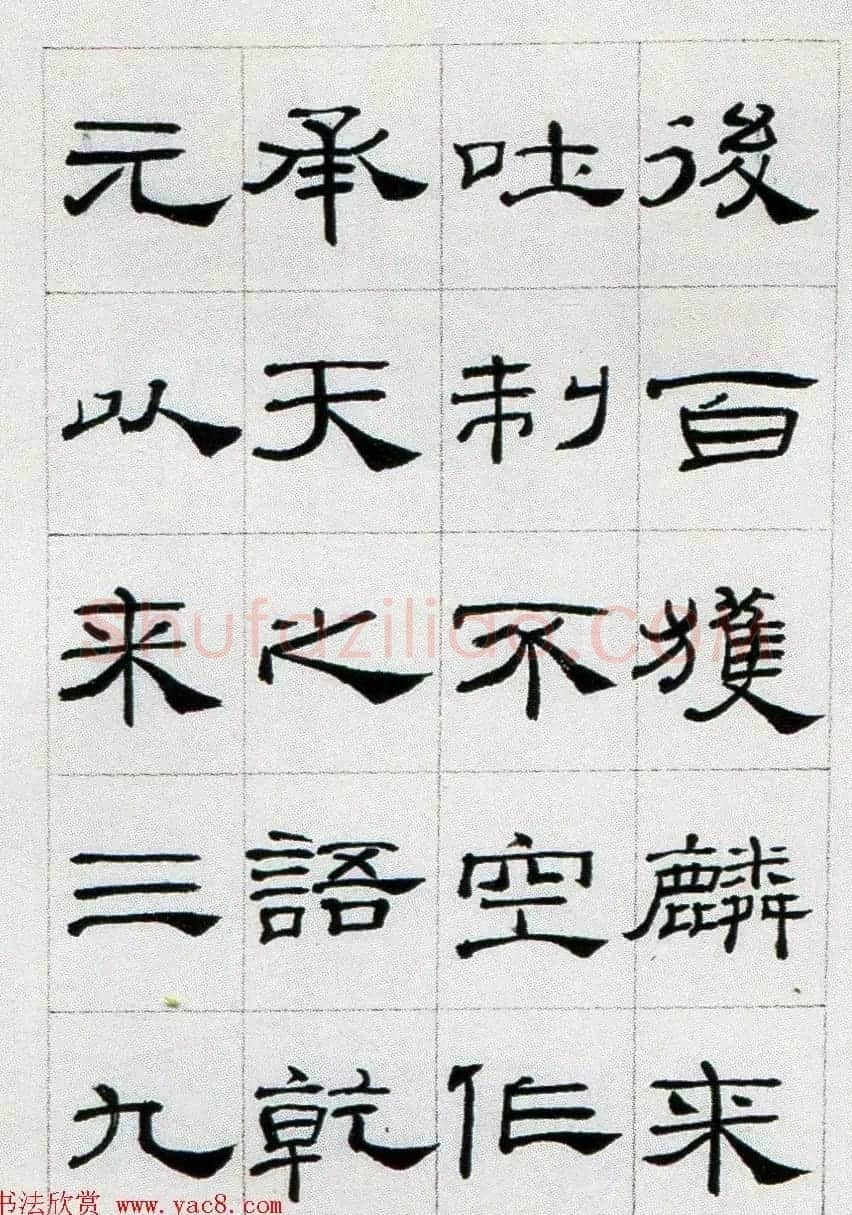 後百獲麟来
吐制不空作
承天之語乾
元以来三九
shufaziliao.com
书法欣赏 www.yac8.com